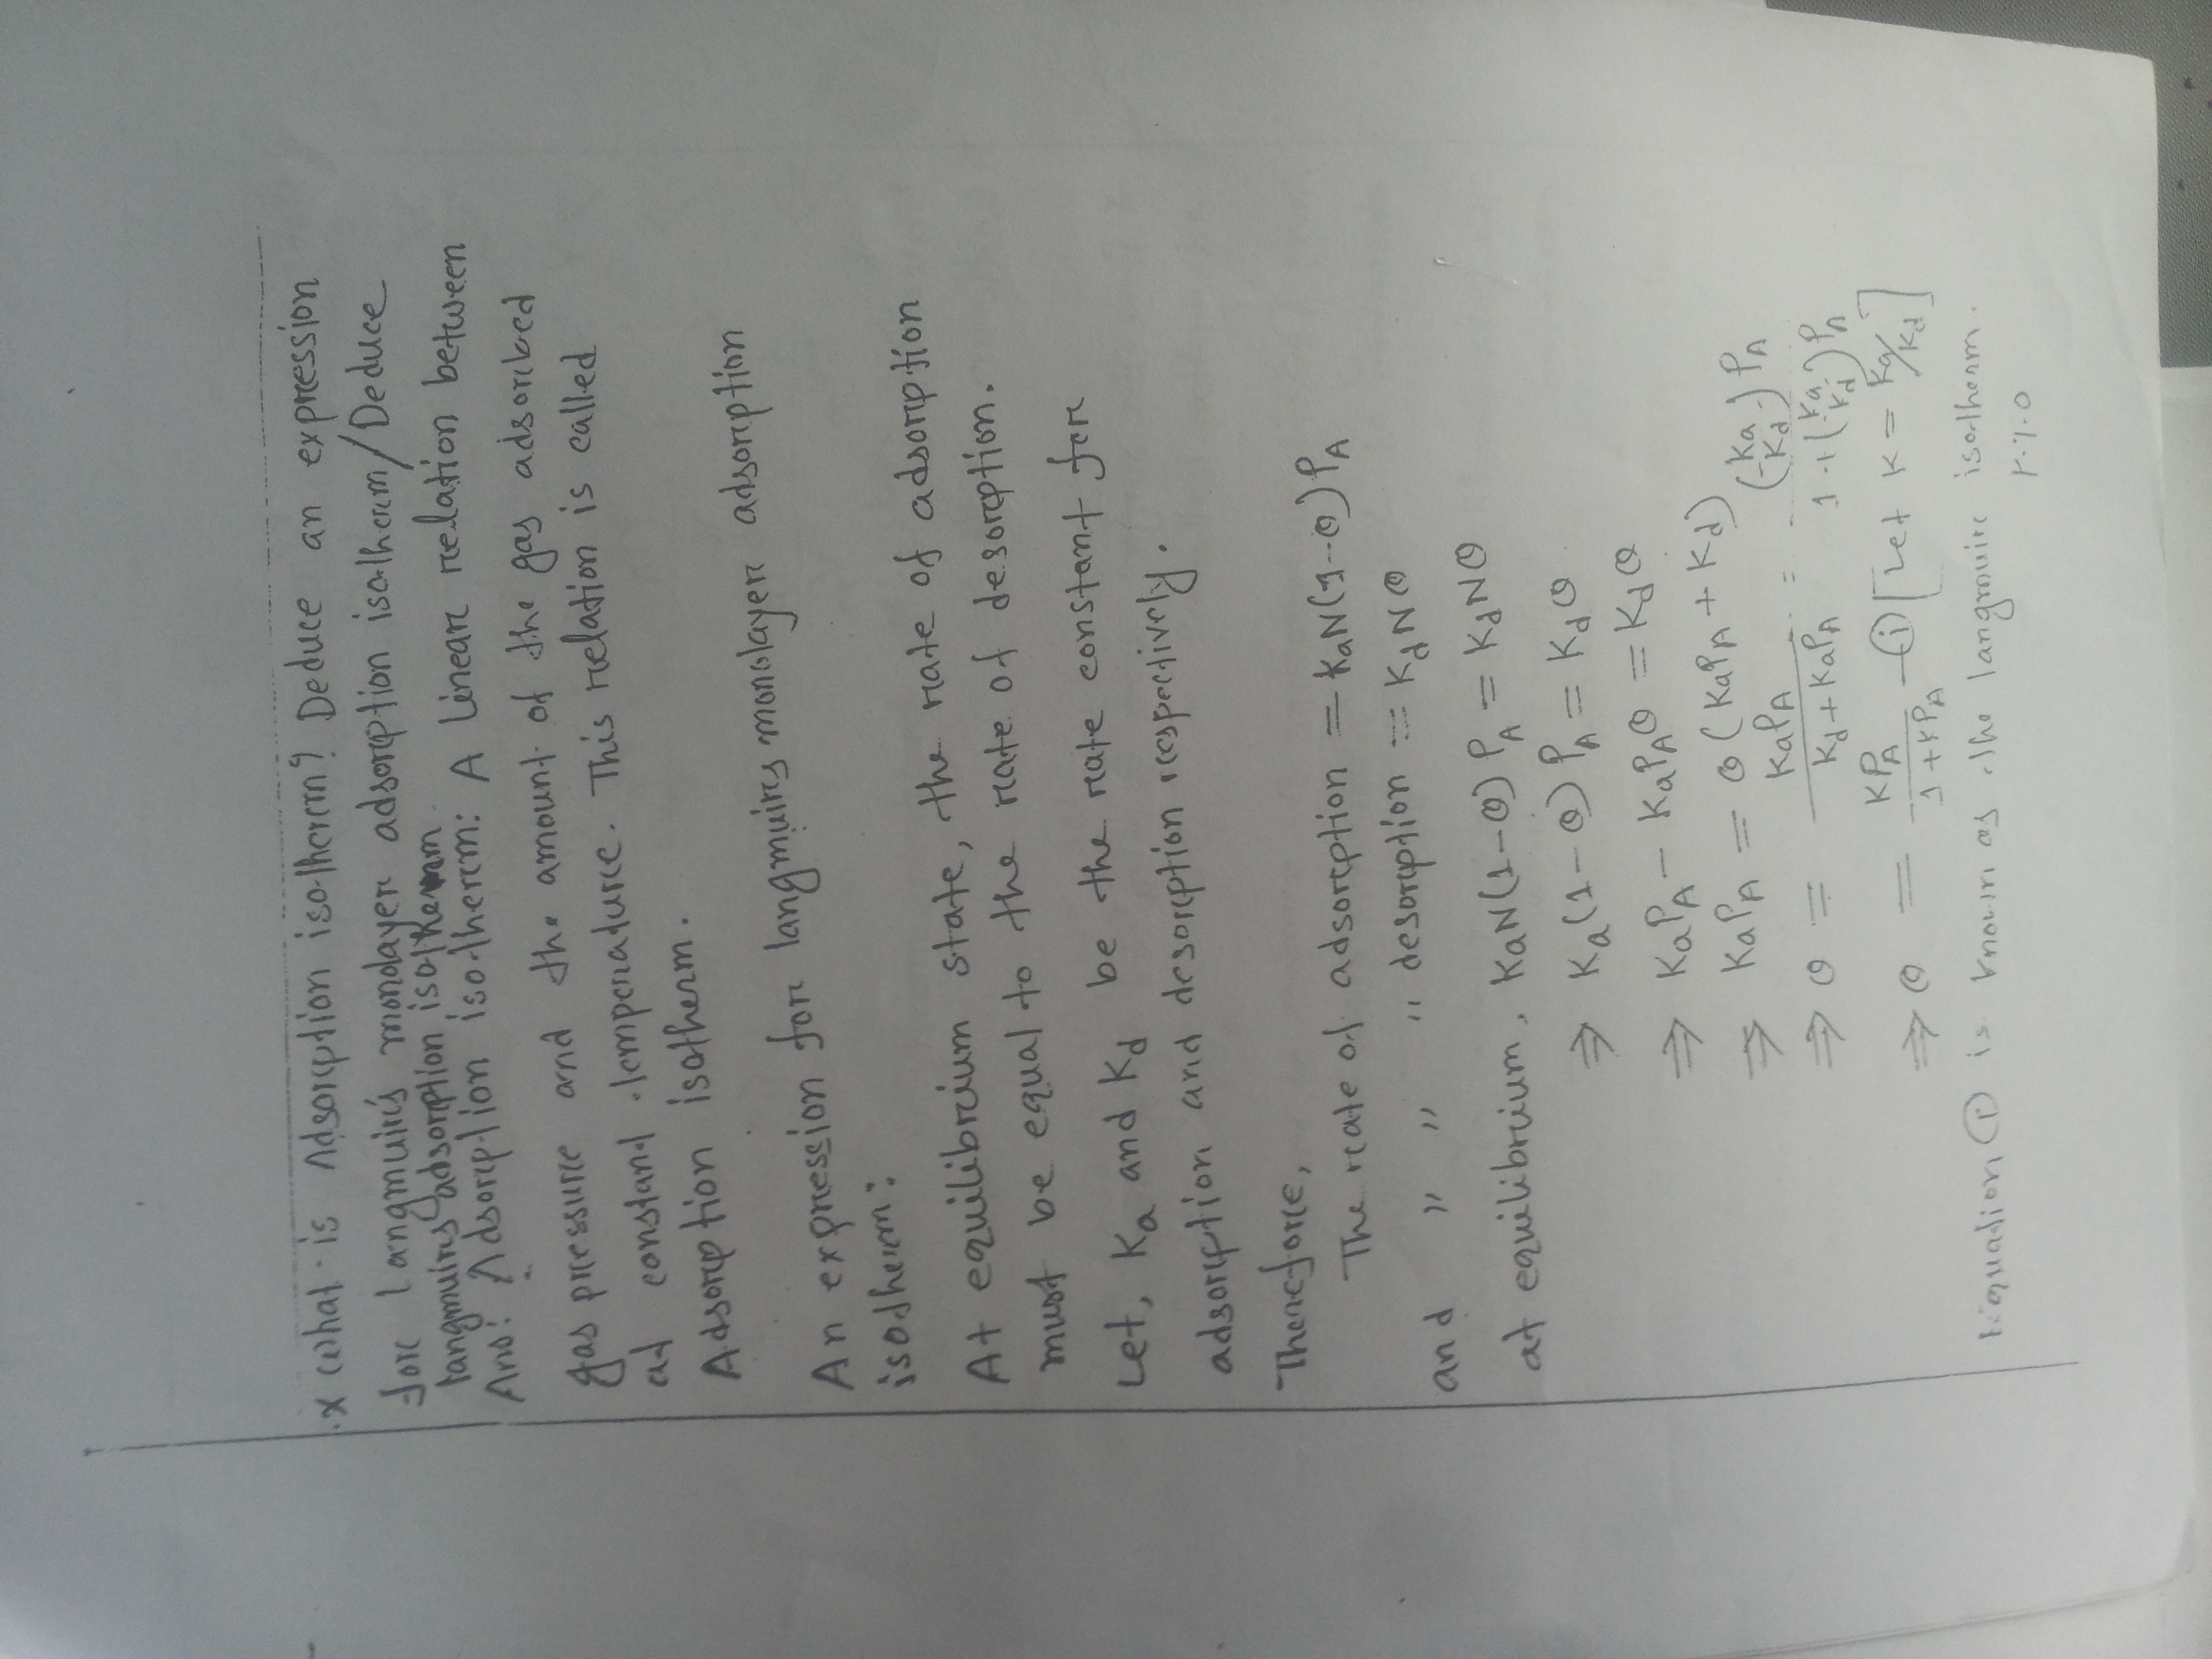 x what is Adsorption isotherm? Deduce an expression
for langmuirs monolayer adsorption isotherm/Deduce
langmuirs adsorption isotherm
Ans: Adsorption isotherm: A linear relation between
gas pressure and the amount of the gas adsorbed
at constant temperature. This relation is called
Adsorption isotherm.
An expression for langmuirs monolayer adsorption
isotherm:
At equilibrium state, the rate of adsorption
must be equal to the rate of desorption.
Let, Ka and Kd be the rate constant for
adsorption and desorption respectively.
Therefore,
The rate of adsorption = KaN(1-θ)PA
and " " " desorption = KdNθ
at equilibrium, KaN(1-θ)PA = KdNθ
⇒ Ka(1-θ)PA = Kdθ
⇒ KaPA - KaPAθ = Kdθ
⇒ KaPA = θ(KaPA + Kd)
⇒ θ = KaPA / Kd+KaPA = (Ka/Kd)PA / 1+(Ka/Kd)PA
⇒ θ = KPA / 1+KPA —(i) [Let K = Ka/Kd]
Equation (i) is known as the langmuir isotherm.
P.T.O